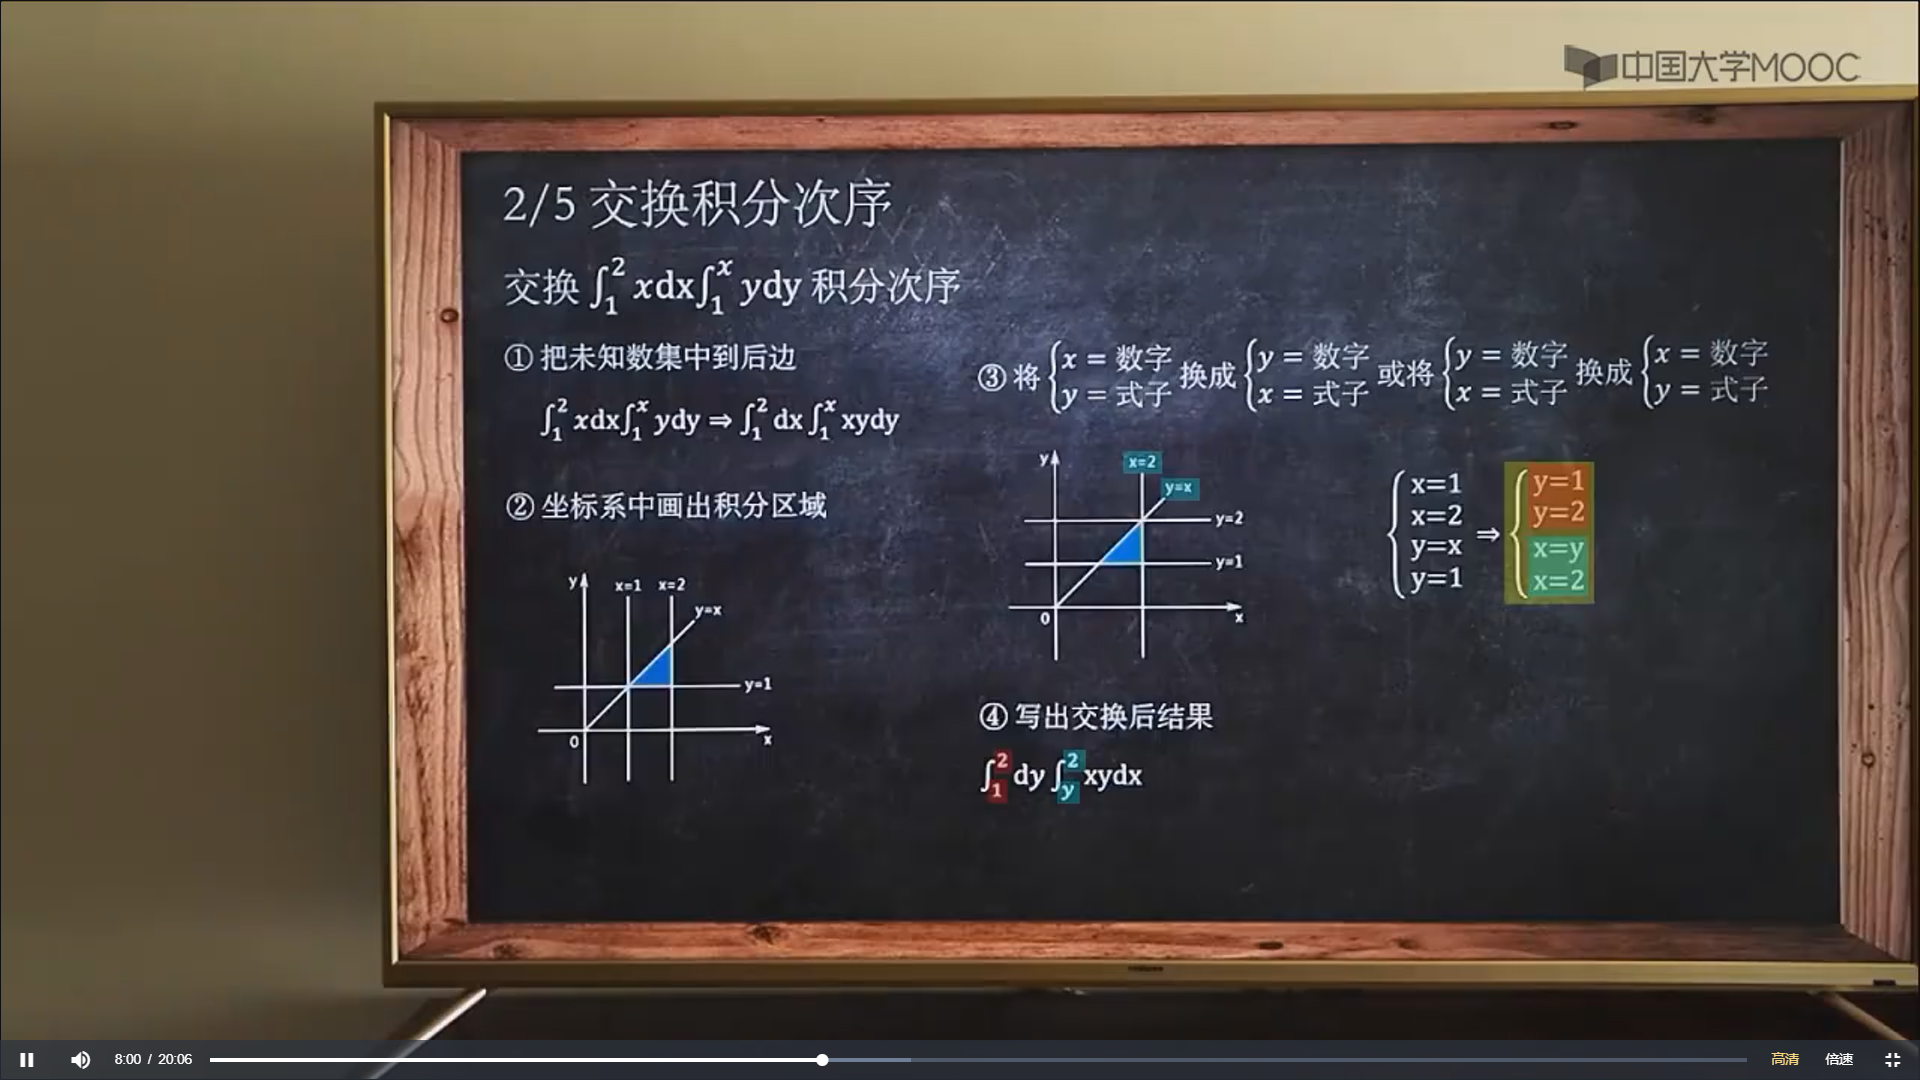 中国大学MOOC
2/5 交换积分次序
交换 ∫₁² xdx∫₁ˣ ydy 积分次序
① 把未知数集中到后边
∫₁² xdx∫₁ˣ ydy ⇒ ∫₁² dx ∫₁ˣ xydy
② 坐标系中画出积分区域
y x=1 x=2
y=x
y=1
0 x
③ 将 { x = 数字 换成 { y = 数字 或将 { y = 数字 换成 { x = 数字
y = 式子 x = 式子 x = 式子 y = 式子
y x=2
y=x
y=2
y=1
0 x
x=1 y=1
x=2 y=2
y=x ⇒ x=y
y=1 x=2
④ 写出交换后结果
∫₁² dy ∫ᵧ² xydx
8:00 / 20:06 高清 倍速